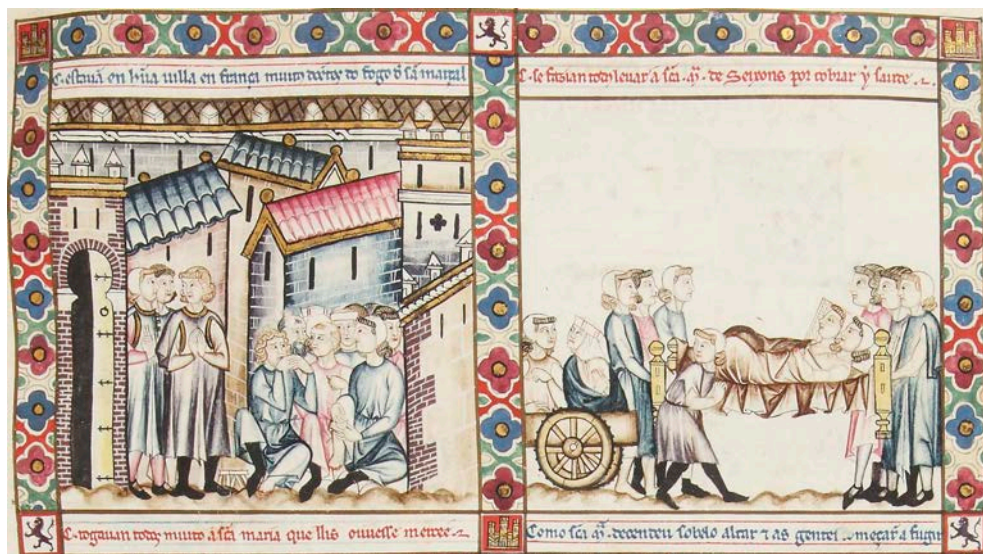 C. estauã en hũa uilla en frança muito do fogo sã marçal
C. se fazian todos leuar a scã. mª. de Seixons por cobrar y saude.
C. rogauan todos muito a scã maria que lhis ouuesse mercee
Como scã mª. decendeu sobelo altar ⁊ as gentes a fugir